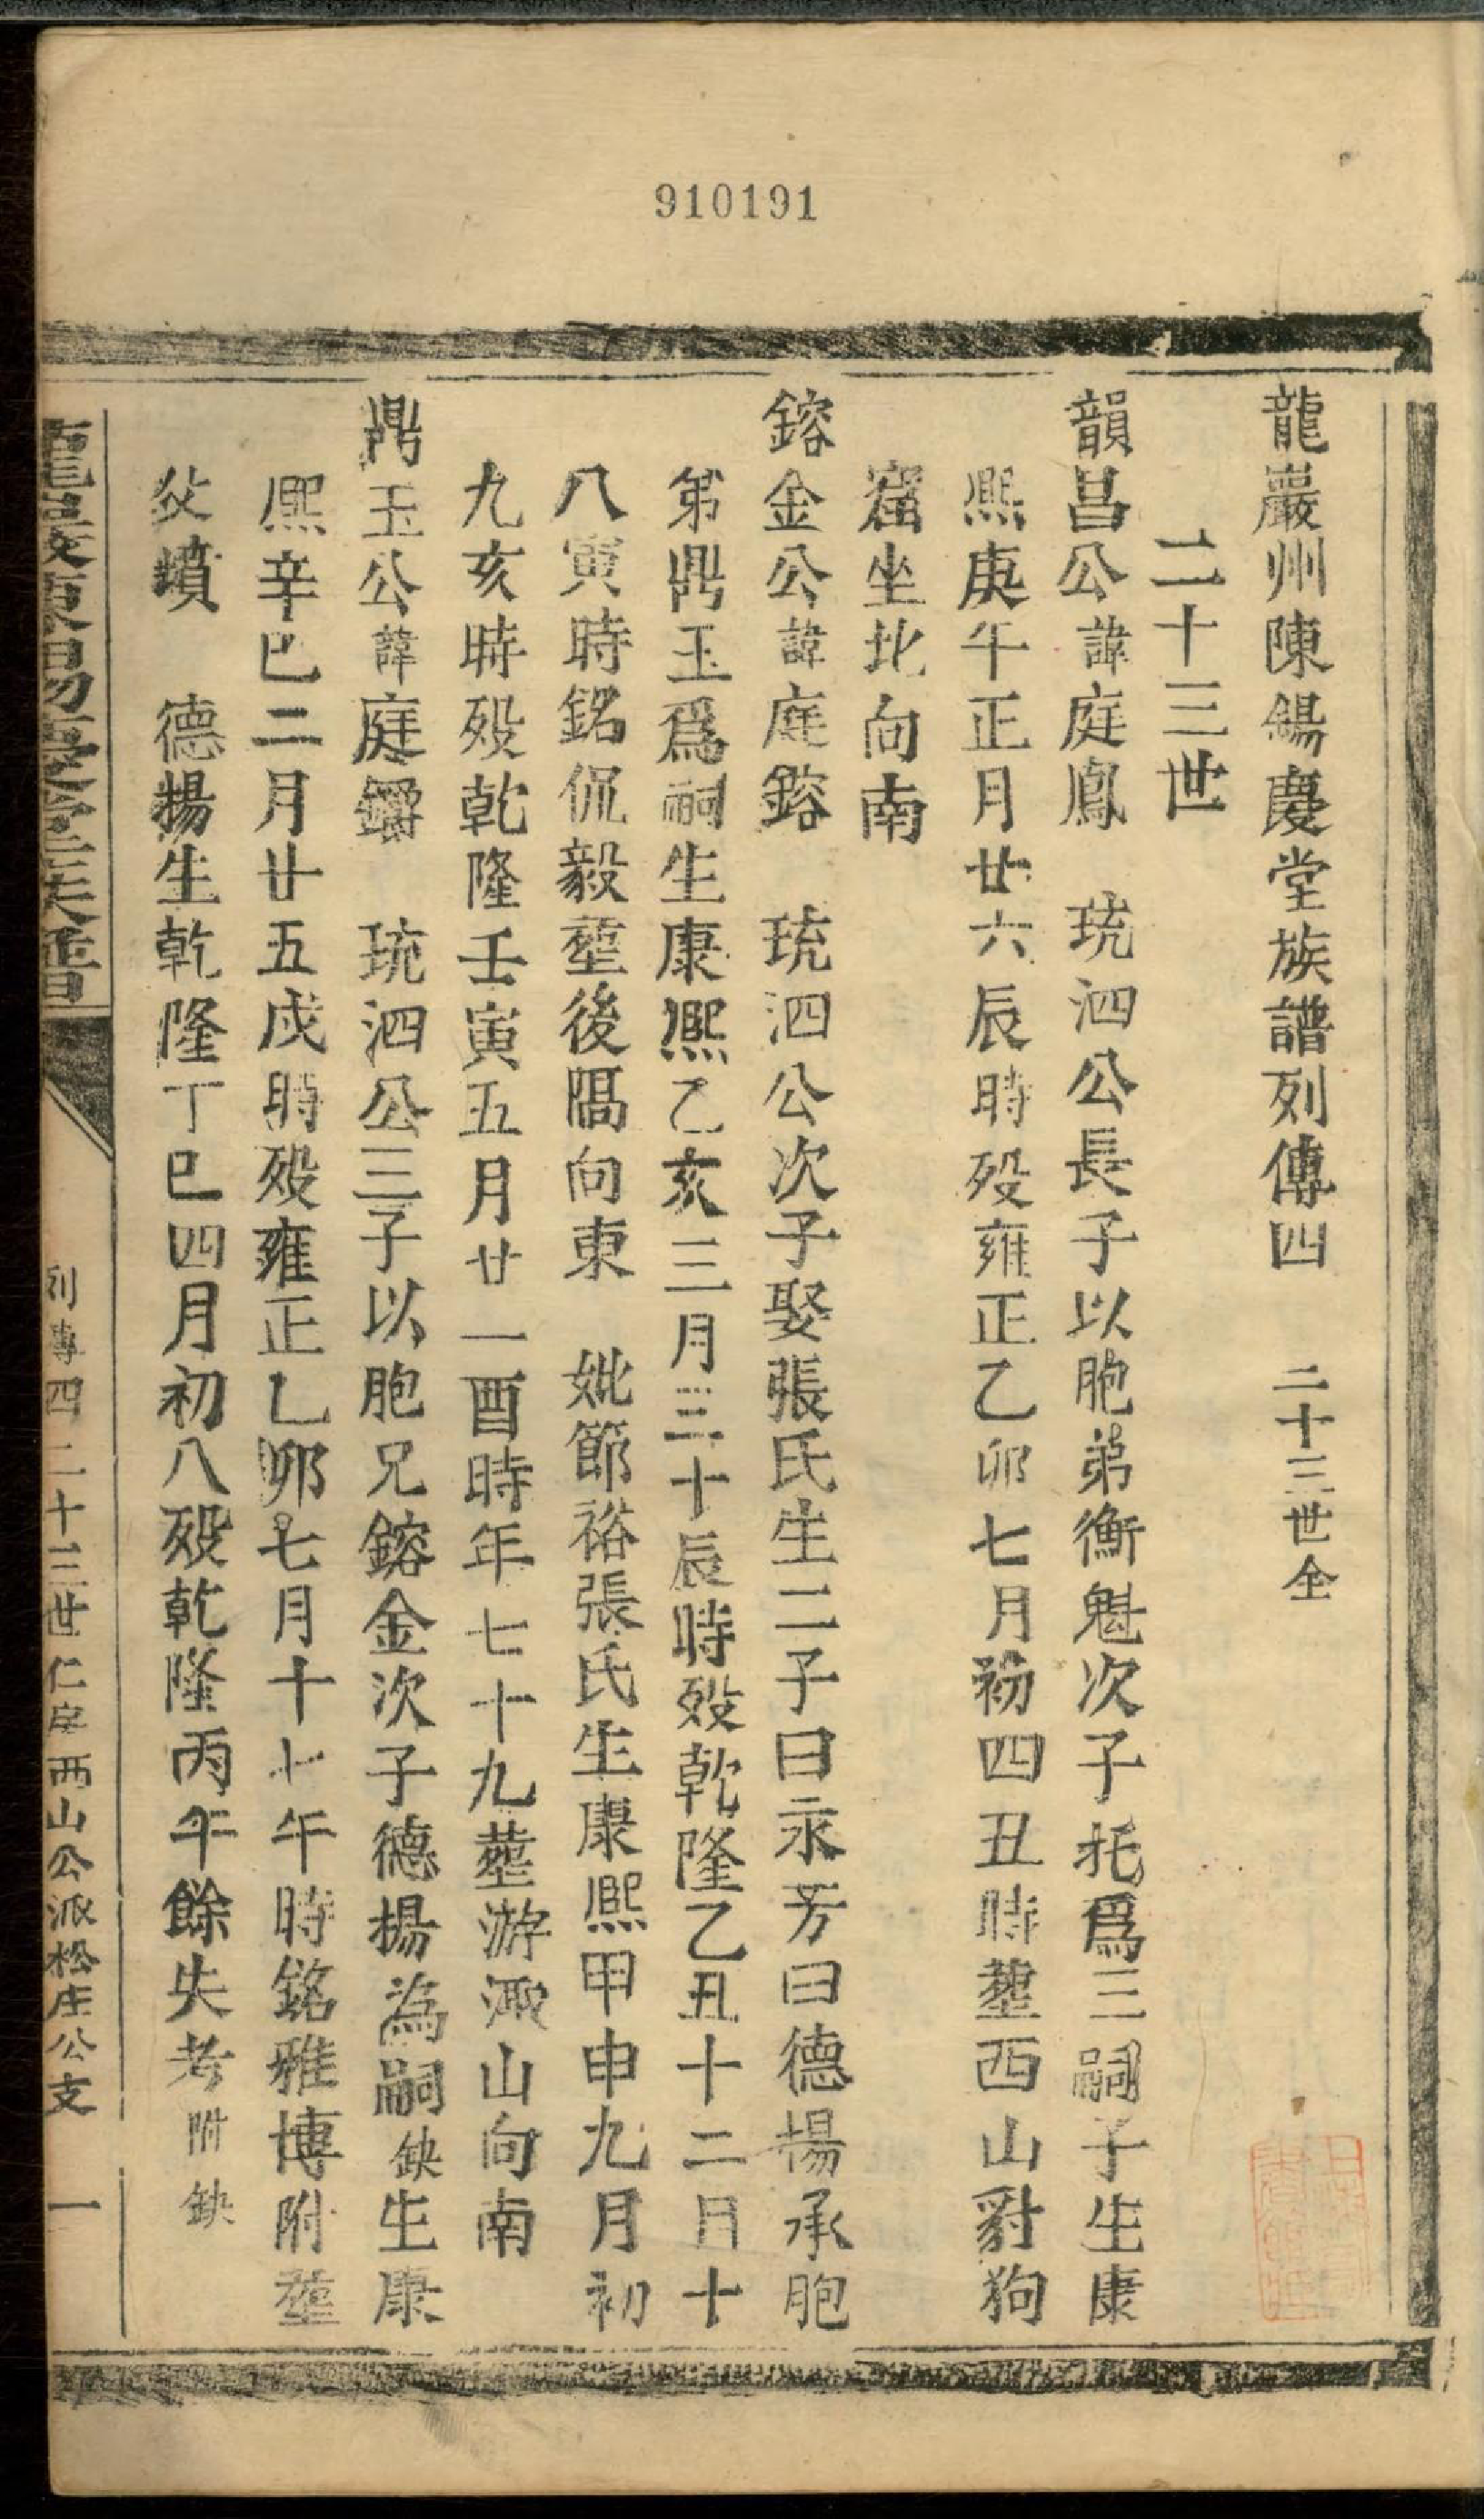 910191
龍巖州陳錫慶堂族譜列傳四 二十三世全
二十三世
韻昌公諱庭鳳 琉泗公長子以胞弟衡魁次子托爲三嗣子生康
熈庚午正月廿六辰時殁雍正乙卯七月初四丑時塟西山豺狗
窟坐北向南
鎔金公諱庭鎔 琉泗公次子娶張氏生二子曰永芳曰德揚承胞
弟鼎玉爲嗣生康熈乙亥三月三十辰時殁乾隆乙丑十二月十
八寅時銘侃毅塟後隔向東 妣節裕張氏生康熈甲申九月初
九亥時殁乾隆壬寅五月廿一酉時年七十九塟游溵山向南
鼎玉公諱庭鑼 琉泗公三子以胞兄鎔金次子德揚為嗣缺生康
熈辛巳二月廿五戌時殁雍正乙卯七月十七午時銘雅博附塟
父墳 德揚生乾隆丁巳四月初八殁乾隆丙午餘失考附缺
列傳四 二十三世仁房西山公派松庄公支 一